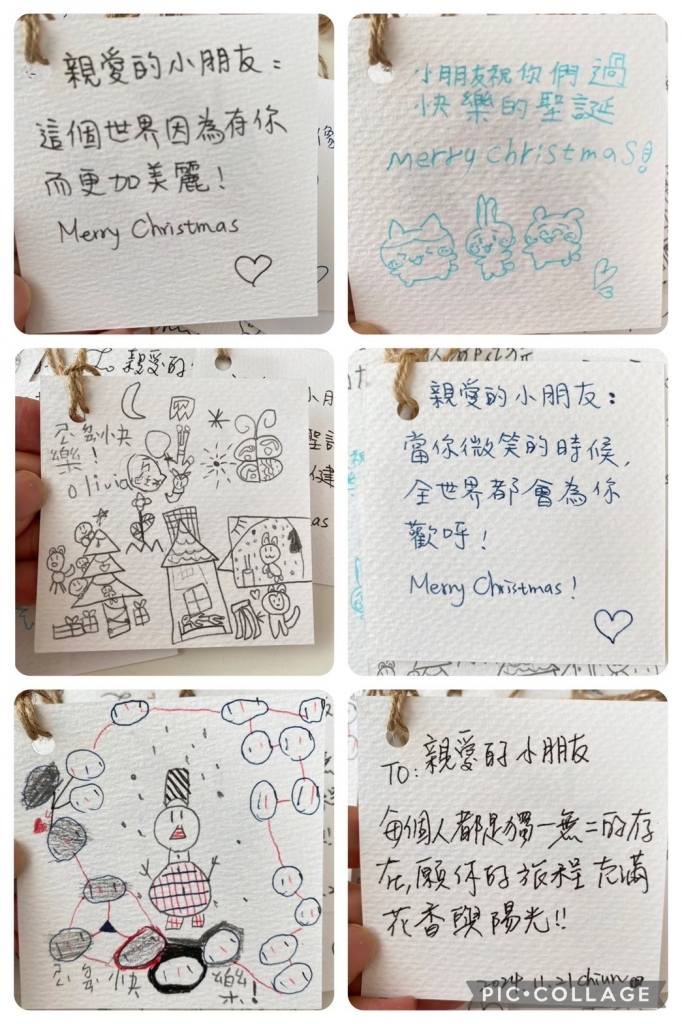 親愛的小朋友：
這個世界因為有你
而更加美麗！
Merry Christmas
小朋友祝你們過
快樂的聖誕
Merry Christmas!
親愛的
快
樂！
olivia
親愛的小朋友：
當你微笑的時候，
全世界都會為你
歡呼！
Merry Christmas!
快樂！
TO: 親愛的小朋友
每個人都是獨一無二的存
在,願你的旅程充滿
花香與陽光!!
2024.11.21 chiun
PIC•COLLAGE